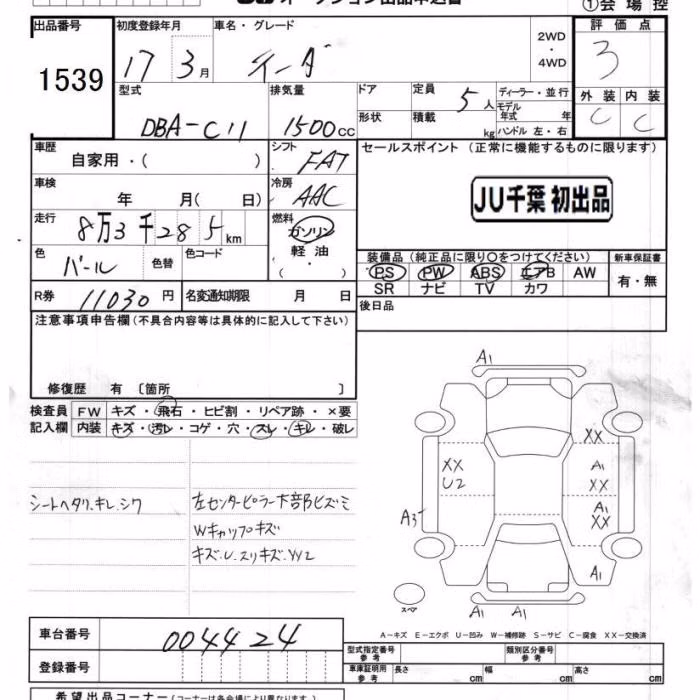 オークション出品申込書
①会場控
出品番号
1539
初度登録年月
17 3月
車名・グレード
ティーダ
2WD
・
4WD
評価点
3
型式
DBA-C11
排気量
1500cc
ドア
形状
定員
5人
積載
kg
ディーラー・並行
モデル年式 年
ハンドル 左・右
外装 内装
C C
車歴
自家用・( )
シフト
FAT
セールスポイント (正常に機能するものに限ります)
JU千葉 初出品
車検
年 月( 日)
冷房
AAC
走行
8万3千285km
燃料
ガソリン
軽油
・
( )
色
パール
色替
色コード
装備品 (純正品に限り○をつけてください)
PS PW ABS エアB AW
SR ナビ TV カワ
新車保証書
有・無
R券
11030円
名変通知期限 月 日
後日品
注意事項申告欄(不具合内容等は具体的に記入して下さい)
修復歴 有 〔箇所 〕
検査員記入欄
FW キズ・飛石・ヒビ割・リペア跡・×要
内装 キズ・汚レ・コゲ・穴・スレ・キレ・破レ
シートヘタリ.キレ.シワ
左センターピラー下部ヒズミ
Wキャップキズ
キズ.U.スリキズ.YY2
A1
XX
XX
U2
A1
XX
A1
XX
A3
A1
A1 A1
スペア
A−キズ E−エクボ U−凹み W−補修跡 S−サビ C−腐食 XX−交換済
車台番号
004424
登録番号
型式指定番号 参考
類別区分番号 参考
車庫証明用 参考
長さ cm 幅 cm 高さ cm
希望出品コーナー(コーナーは各会場により異なります)